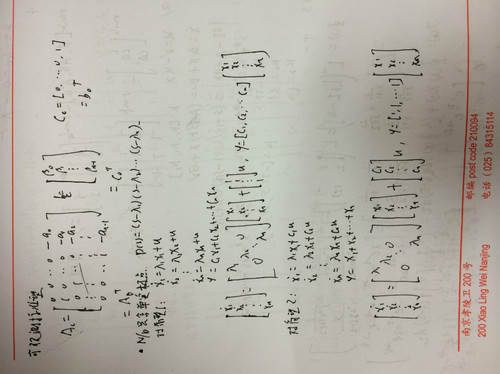 可观测标准型
A_c = [0 0 ⋯ 0 -a₀; 1 0 ⋯ 0 -a₁; 0 1 ⋯ 0 -a₂; ⋮ ⋮ ⋮ ⋮; 0 0 ⋯ 1 -aₙ₋₁] b_c = [β₀; β₁; ⋮; βₙ₋₁] C_c = [0, ⋯ 0, 1]
= A_b^T = C_0^T = b_0^T
• N/D 只含单实极点 D(s)=(s-λ₁)(s-λ₂)⋯(s-λₙ)
对角型1: ẋ₁=λ₁x₁+u
ẋ₂=λ₂x₂+u
⋮
ẋₙ=λₙxₙ+u
y=C₁x₁+C₂x₂+⋯+Cₙxₙ
[ẋ₁; ẋ₂; ⋮; ẋₙ] = [λ₁; λ₂ 0; 0 ⋱ λₙ] [x₁; x₂; ⋮; xₙ] + [1; 1; ⋮; 1] u, y=[C₁, C₂, ⋯ Cₙ] [x₁; x₂; ⋮; xₙ]
对角型2: ẋ₁=λ₁x₁+C₁u
ẋ₂=λ₂x₂+C₂u
⋮
ẋₙ=λₙxₙ+Cₙu
y=x₁+x₂+⋯+xₙ
[ẋ₁; ẋ₂; ⋮; ẋₙ] = [λ₁; λ₂ 0; 0 ⋱ λₙ] [x₁; x₂; ⋮; xₙ] + [C₁; C₂; ⋮; Cₙ] u, y=[1, 1, ⋯ 1] [x₁; x₂; ⋮; xₙ]
南京孝陵卫 200 号 邮编 post code 210094
200 Xiao Ling Wei Nanjing 电话 (025) 84315114